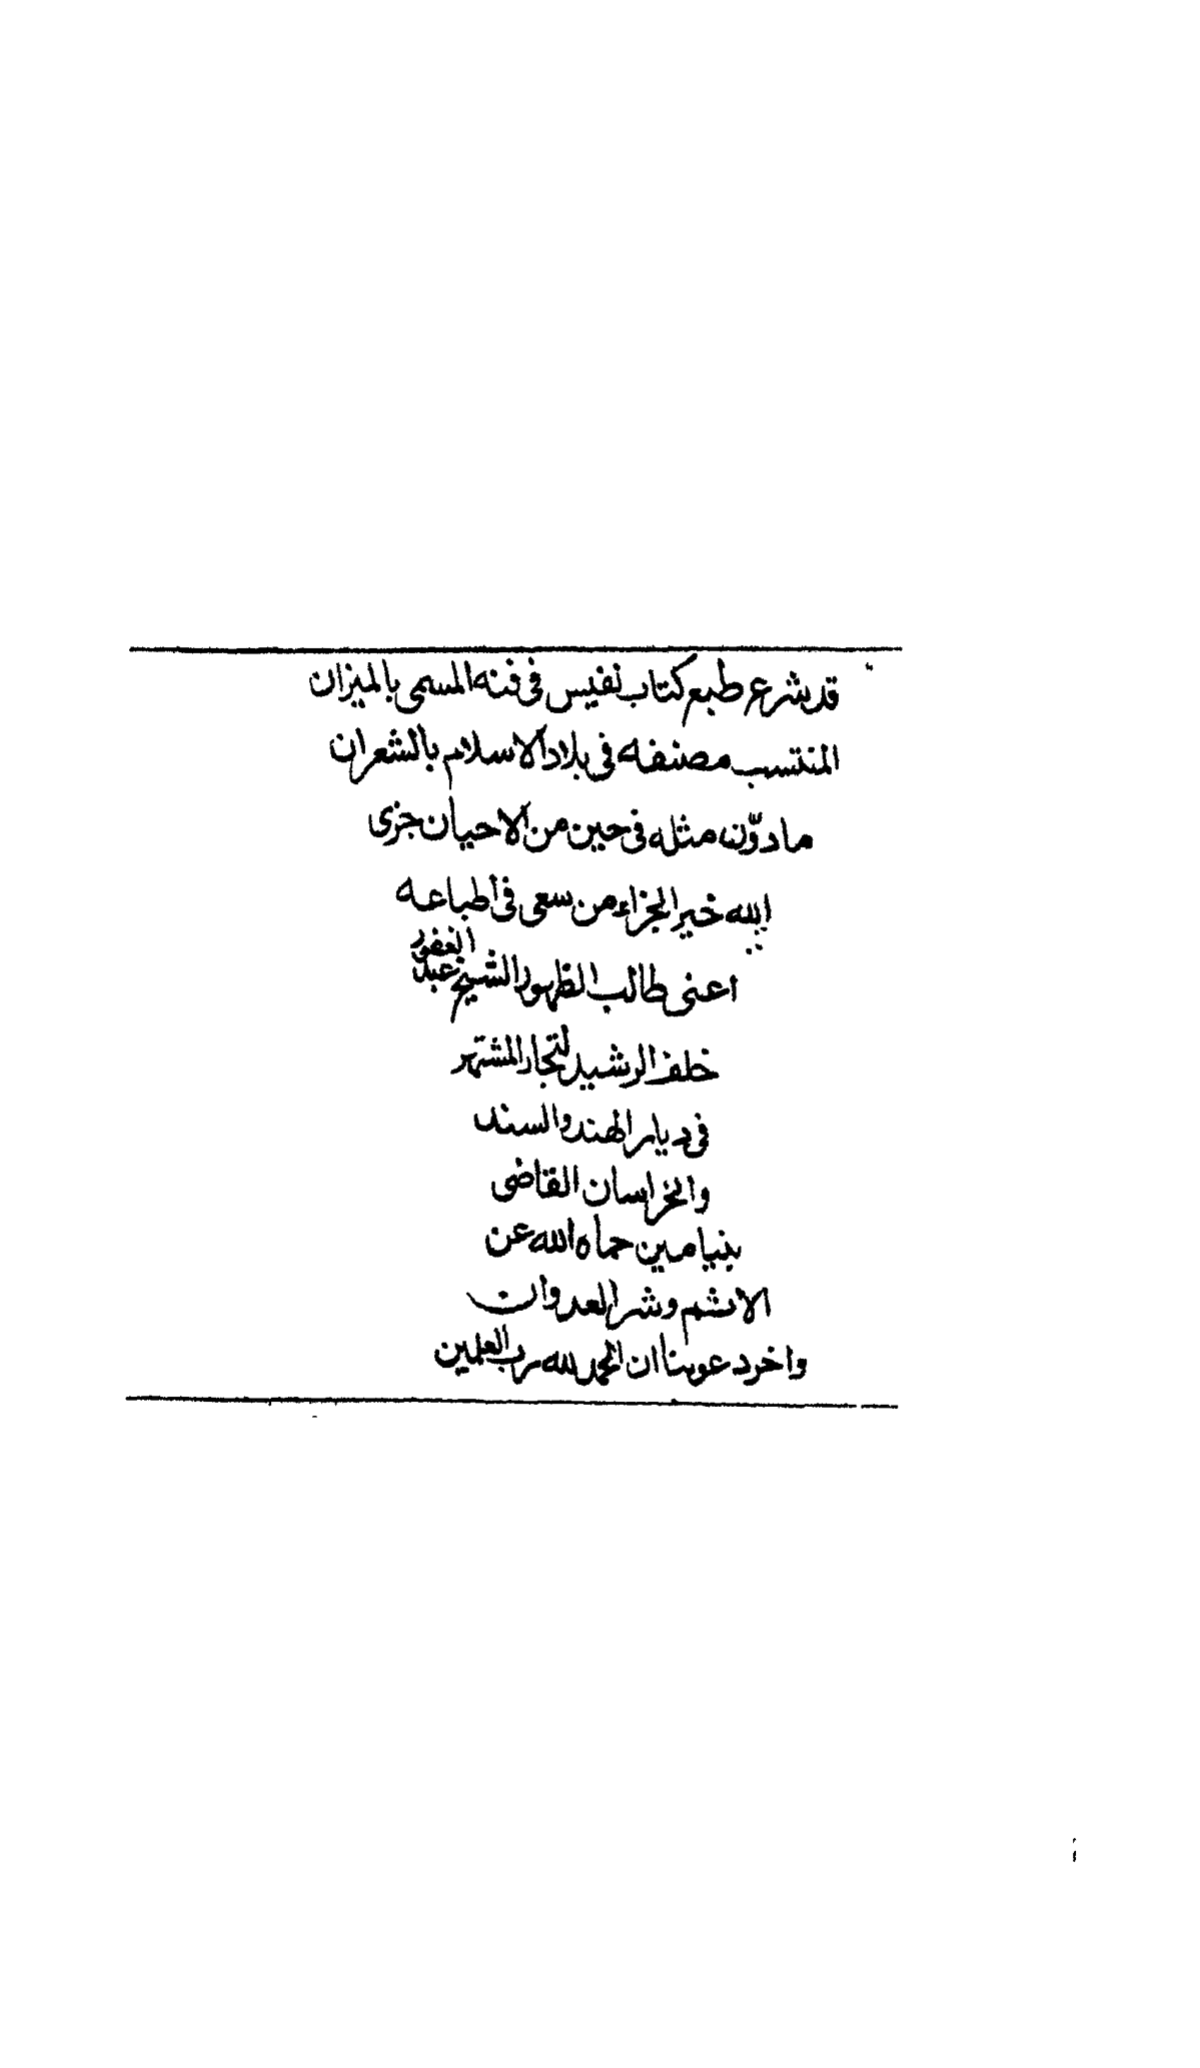 قد شرع طبع كتاب نفيس فى فنه المسمى بالميزان
المنتسب مصنفه فى بلاد الاسلام بالشعران
ما دوّن مثله فى حين من الاحيان جزى
الله خير الجزاء من سعى فى اطباعه
اعنى طالب الظهور الشيخ عبد الغفور
خلف الرشيد لتجار المشتهر
فى ديار الهند والسند
والخراسان القاضى
بنيامين حماه الله عن
الاثم وشر العدوان
واخر دعوىنا ان الحمد لله رب العلمين